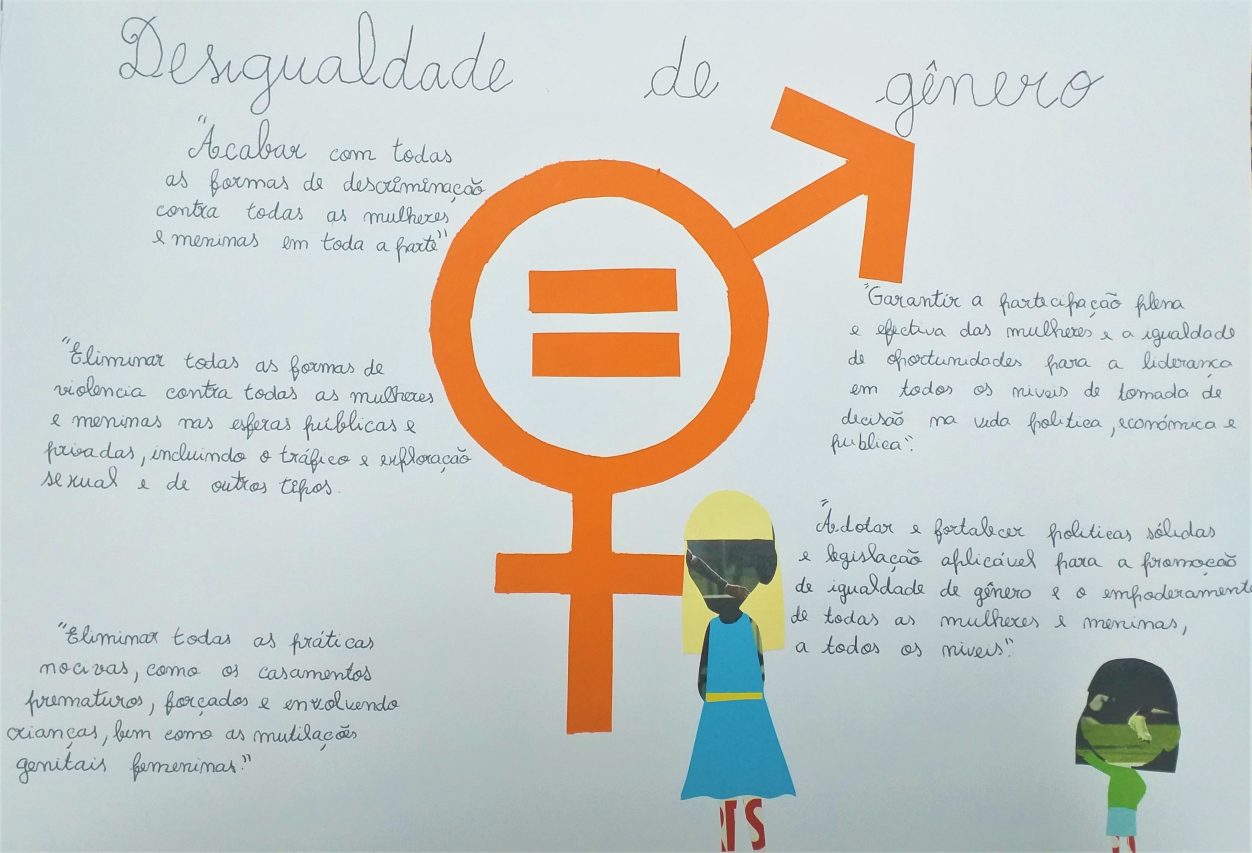 Desigualdade de gênero
"Acabar com todas
as formas de descriminação
contra todas as mulheres
e meninas em toda a parte"
"Eliminar todas as formas de
violencia contra todas as mulheres
e meninas nas esferas públicas e
privadas, incluindo o tráfico e exploração
sexual e de outros tipos.
"Eliminar todas as práticas
nocivas, como os casamentos
prematuros, forçados e envolvendo
crianças, bem como as mutilações
genitais femeninas."
"Garantir a participação plena
e efectiva das mulheres e a igualdade
de oportunidades para a liderança
em todos os niveis de tomada de
decisão na vida politica, económica e
publica".
"Adotar e fortalecer politicas sólidas
e legislação aplicável para a promoção
de igualdade de gênero e o empoderamento
de todas as mulheres e meninas,
a todos os niveis".